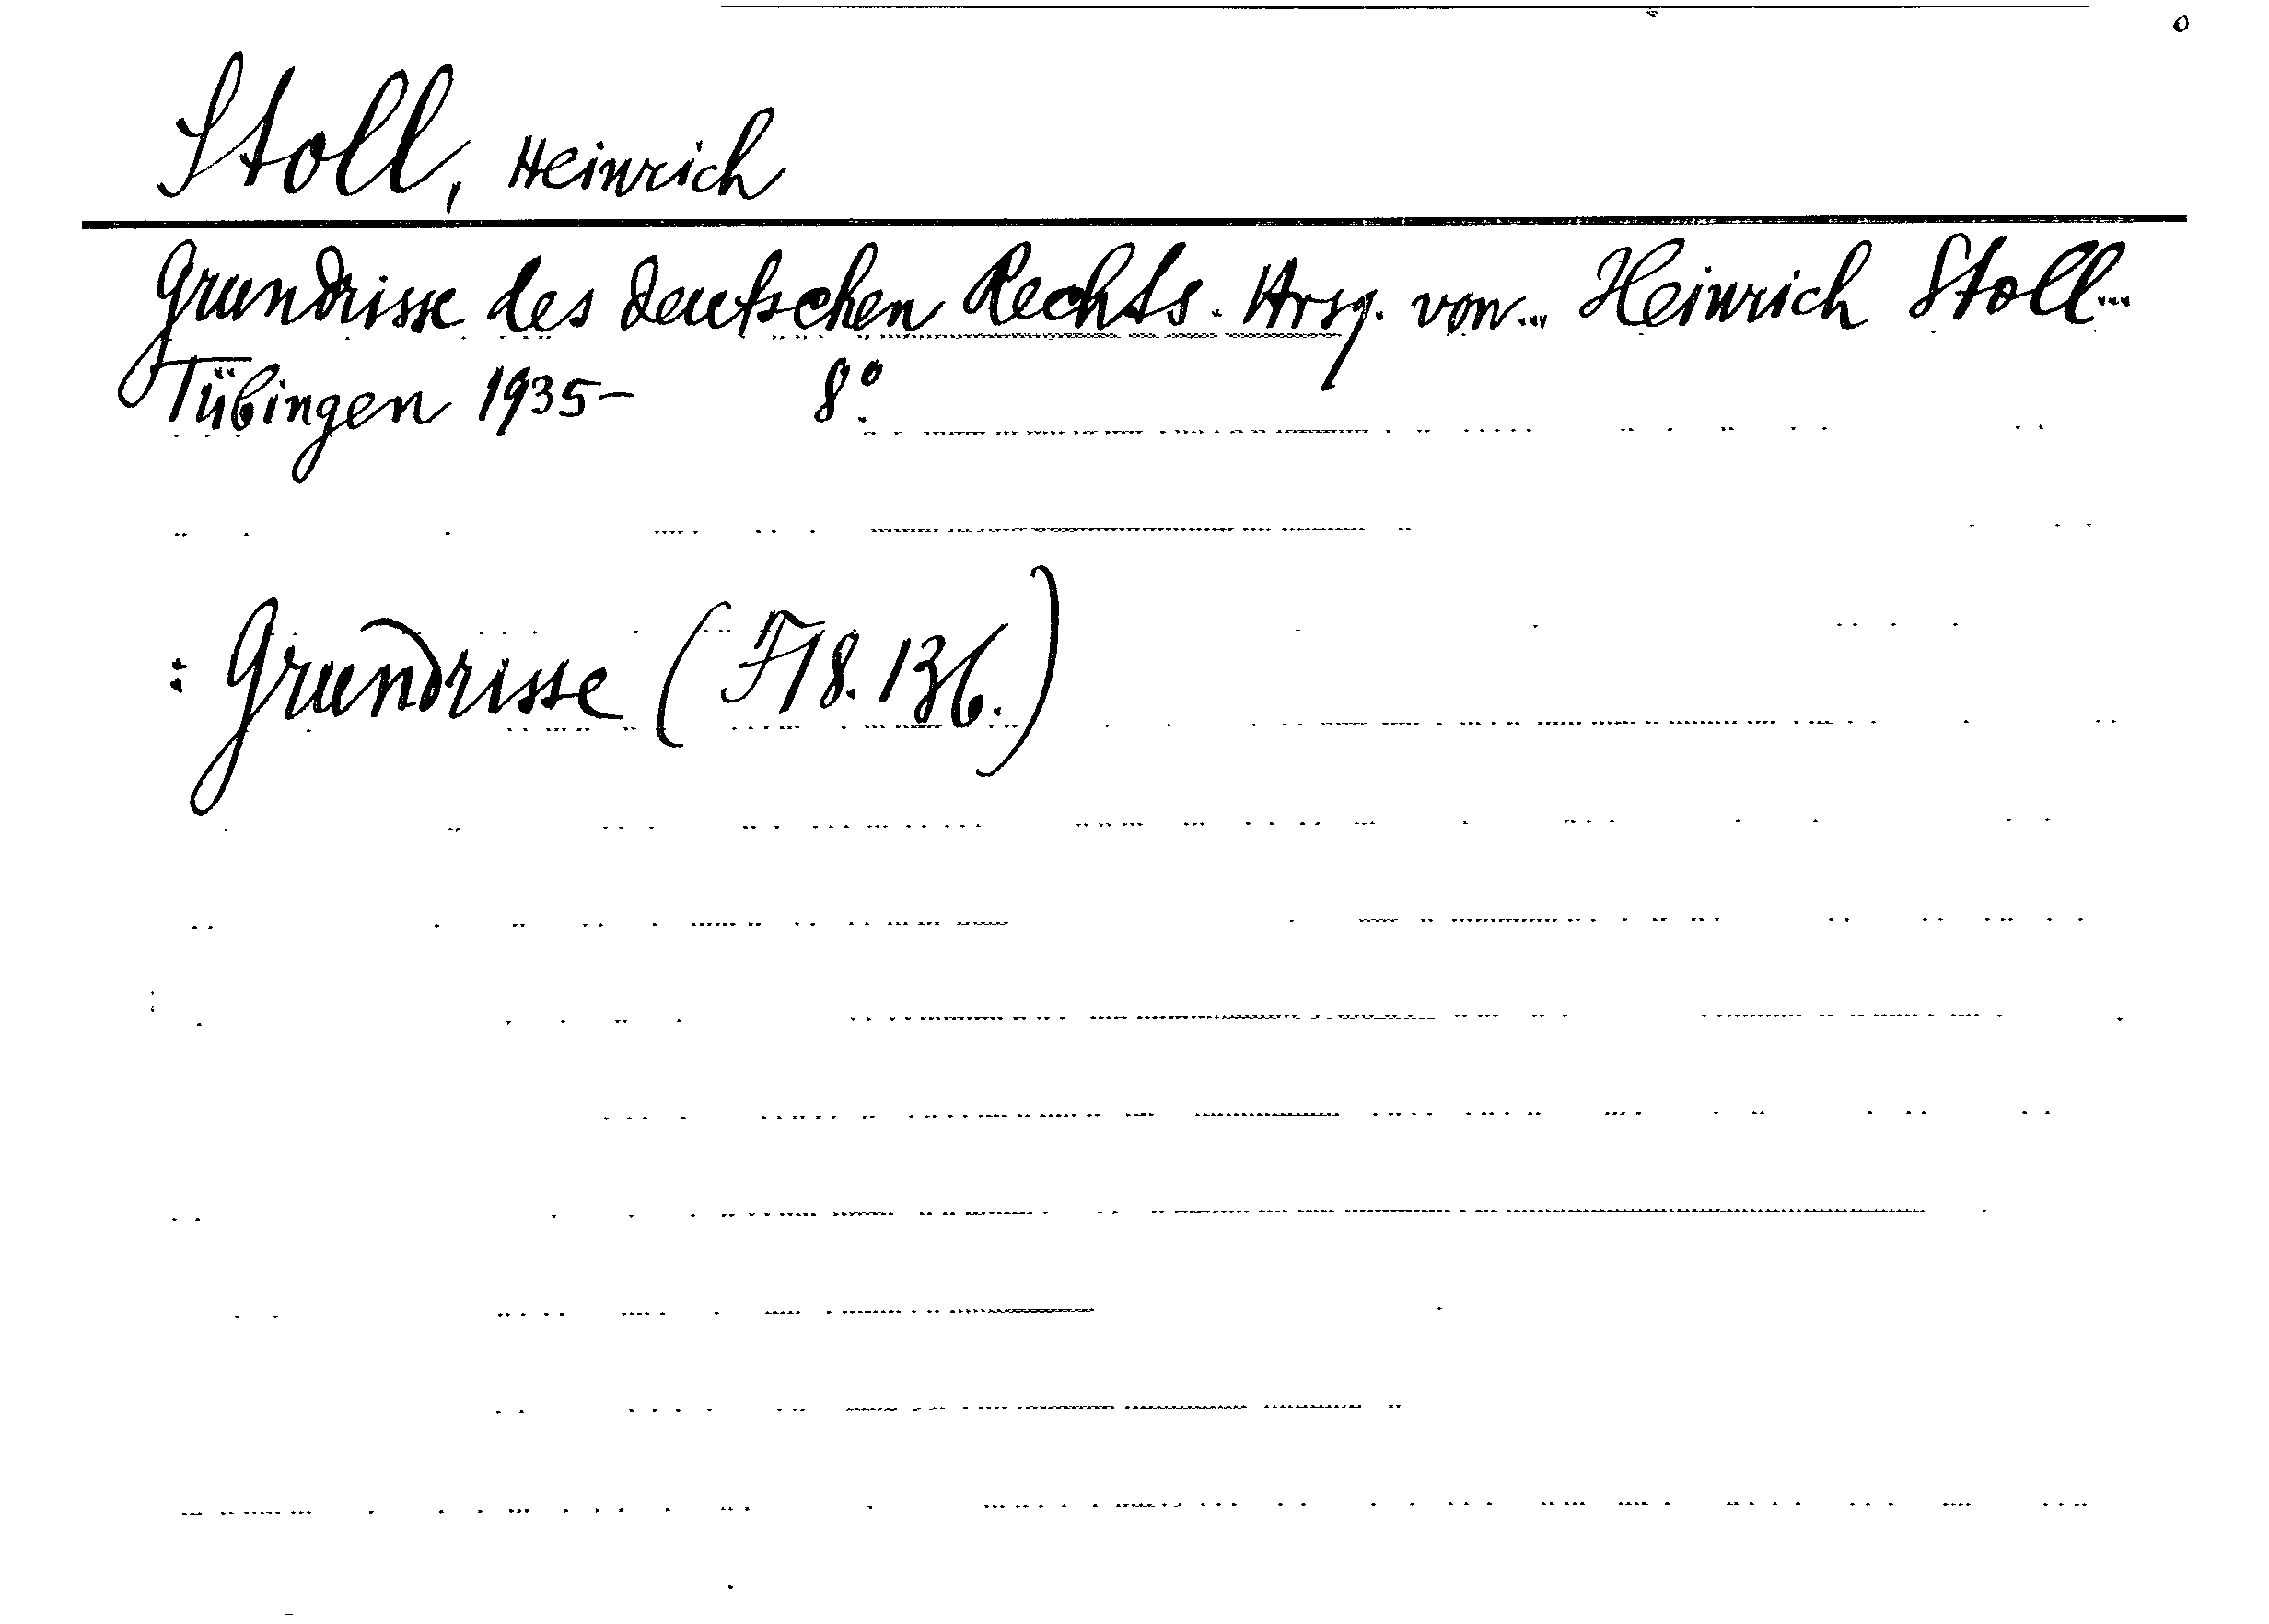 Stoll, Heinrich
Grundrisse des deutschen Rechts. Hrsg. von... Heinrich Stoll...
Tübingen 1935- 8°.
: Grundrisse (F18.136.)